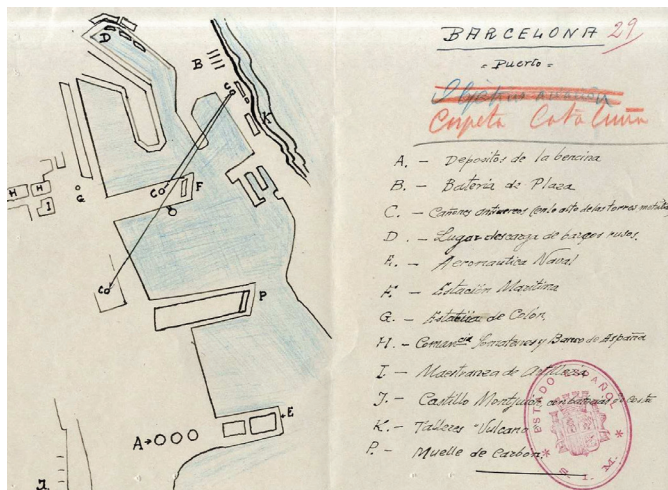 BARCELONA 29
= Puerto =
Objetivos aviación
Carpeta Cataluña
A. - Depositos de la bencina
B. - Bateria de Plaza
C. - Cañones antiaereos (en lo alto de las torres metalicas
D. - Lugar descarga de barcos rusos.
E. - Aeronautica Naval
F. - Estación Maritima
G. - Estatua de Colón,
H. - Comancia y Banco de España
I. - Maestranza de Artilleria
J. - Castillo Montjuich, con baterias de costa
K. - Talleres "Vulcano"
P. - Muelle de Carbón.
ESTADO ESPAÑOL
S. I. M.
D
B
C
K
H
H
I
G
C
F
C
P
A
E
J.